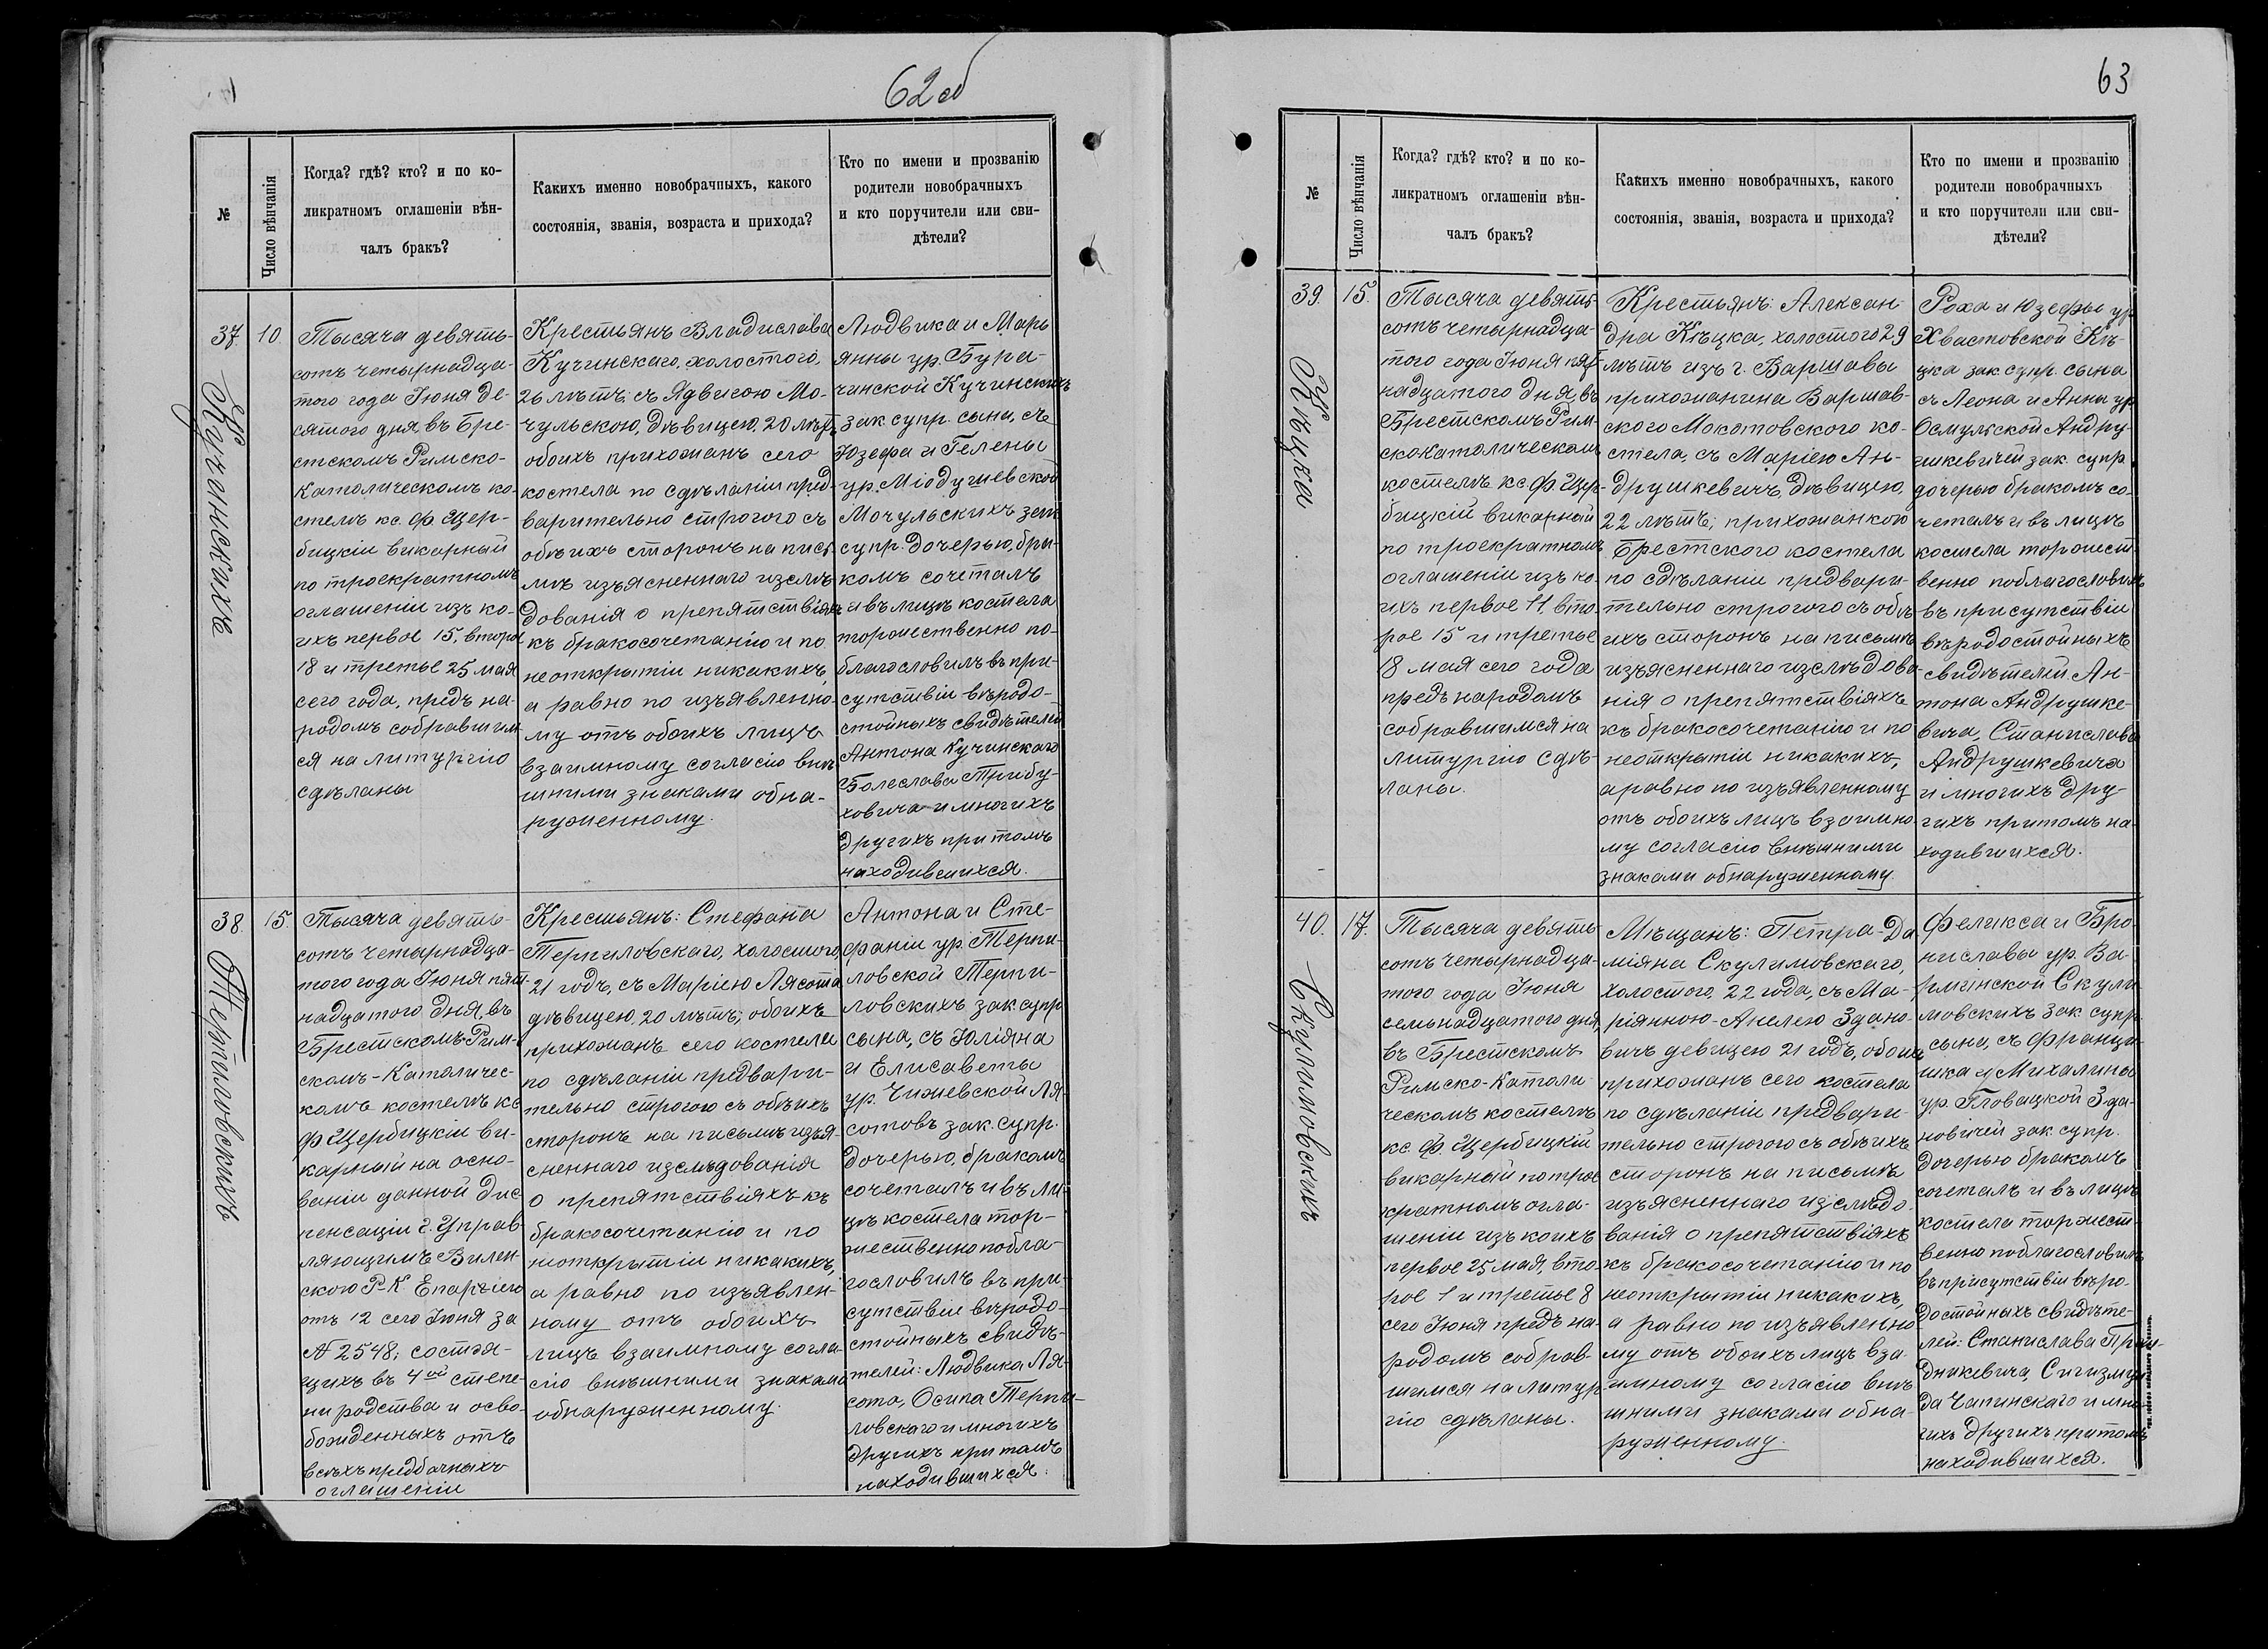 62 об
№
Число вѣнчанія
Когда? гдѣ? кто? и по ко-
ликратномъ оглашеніи вѣн-
чалъ бракъ?
Какихъ именно новобрачныхъ, какого
состоянія, званія, возраста и прихода?
Кто по имени и прозванію
родители новобрачныхъ
и кто поручители или сви-
дѣтели?
37.
Кучинскихъ
10.
Тысяча девять-
сотъ четырнадца-
того года Іюня де-
сятого дня въ Бре-
стскомъ Римско-
Католическомъ ко-
стелѣ кс. Ф. Щер-
бицкіи викарный
по троекратномъ
оглашеніи изъ ко-
ихъ первое 15, второе
18 и третье 25 мая
сего года, предъ на-
родомъ собравшим
ся на литургію
сдѣланы
Крестьянъ Владислава
Кучинскаго, холостого,
26 лѣтъ, съ Ядвигою Мо-
чульскою, дѣвицею, 20 лѣтъ
обоихъ прихожанъ сего
костела по сдѣланіи пред-
варительно строгого съ
обѣихъ сторонъ на пись-
мѣ изъясненнаго изслѣ-
дованія о препятствіяхъ
къ бракосочетанію и по
неоткрытіи никакихъ,
а равно по изъявленно-
му отъ обоихъ лицъ
взаимному согласію внѣ
шними знаками обна-
руженному.
Людвика и Марь
янны ур. Бура-
чинской Кучинскихъ
зак. супр. сына, съ
Юзефа и Гелены
ур. Міодушевской
Мочульскихъ зак
супр. дочерью, бра-
комъ сочеталъ
и въ лицѣ костела
торжественно по-
благословилъ въ при-
сутствіи вѣродо-
стойныхъ свидѣтелей
Антона Кучинскаго
Болеслава Трибу-
ховича и многихъ
другихъ при томъ
находившихся.
38.
Терпиловскихъ
15.
Тысяча девять-
сотъ четырнадца-
того года Іюня пят-
надцатого дня, въ
Брестскомъ Рим-
скомъ-Католичес-
комъ костелѣ кс
Ф Щербицкіи ви-
карный на осно-
ваніи данной дис
пенсаціи г. Управ
ляющимъ Вилен-
скою Р-К Епархіею
отъ 12 сего Іюня за
№ 2548, состоя-
щихъ въ 4ой степе-
ни родства и осво-
божденныхъ отъ
всѣхъ предбрачныхъ
оглашеніи
Крестьянъ: Стефана
Терпиловскаго, холостого,
21 годъ, съ Маріею Лясота
дѣвицею, 20 лѣтъ, обоихъ
прихожанъ сего костела
по сдѣланіи предвари-
тельно строгою съ обѣихъ
сторонъ на письмѣ изъя-
сненнаго изслѣдованія
о препятствіяхъ къ
бракосочетанію и по
неоткрытіи никакихъ,
а равно по изъявлен-
ному отъ обоихъ
лицъ взаимному согла-
сію внѣшними знаками
обнаруженному.
Антона и Сте-
фаніи ур. Терпи-
ловской Терпи-
ловскихъ зак. супр.
сына, съ Юліяна
и Елисаветы
ур. Чижевской Ля-
сотовъ зак. супр.
дочерью, бракомъ
сочеталъ и въ ли-
цѣ костела тор-
жественно побла-
гословилъ въ при-
сутствіи вѣродо-
стойныхъ свидѣ-
телей: Людвика Ля-
сота, Осипа Терпи-
ловскаго и многихъ
другихъ при томъ
находившихся.
63
№
Число вѣнчанія
Когда? гдѣ? кто? и по ко-
ликратномъ оглашеніи вѣн-
чалъ бракъ?
Какихъ именно новобрачныхъ, какого
состоянія, званія, возраста и прихода?
Кто по имени и прозванію
родители новобрачныхъ
и кто поручители или сви-
дѣтели?
39.
Кѣцка
15.
Тысяча девять-
сотъ четырнадца-
того года Іюня пят
надцатого дня, въ
Брестскомъ Рим-
скокатолическомъ
костелѣ кс. Ф. Щер-
бицкій викарный
по троекратномъ
оглашеніи изъ ко-
ихъ первое 11. вто
рое 15 и третье
18 мая сего года
предъ народомъ
собравшимся на
литургію сдѣ-
ланы.
Крестьянъ: Алексан-
дра Кѣцка, холостого 29
лѣтъ изъ г. Варшавы
прихожанина Варшав-
ского Мокотовского ко-
стела, съ Маріею Ан-
друшкевичъ, дѣвицею,
22 лѣтъ; прихожанкою
Брестского костела
по сдѣланіи предвари-
тельно строгого съ обѣ
ихъ сторонъ на письмѣ
изъясненнаго изслѣдова
нія о препятствіяхъ
къ бракосочетанію и по
неоткрытіи никакихъ,
а равно по изъявленному
отъ обоихъ лицъ взаимно
му согласію внѣшними
знаками обнаруженному
Роха и Юзефы ур
Хвастовской Кѣ-
цка зак. супр. сына
съ Леона и Анны ур
Осмульской Андру-
шкевичей зак. супр.
дочерью бракомъ со-
четалъ и въ лицѣ
костела торжест-
венно поблагословилъ
въ присутствіи
вѣродостойныхъ
свидѣтелей: Ан-
тона Андрушке-
вича, Станислава
Андрушкевича
и многихъ дру-
гихъ притомъ на-
ходившихся.
40.
Скулимовскихъ
17.
Тысяча девять-
сотъ четырнадца-
того года Іюня
семьнадцатого дня,
въ Брестскомъ
Римско-Католи
ческомъ костелѣ
кс. Ф. Щербицкій
викарный по трое
кратномъ огла-
шеніи изъ коихъ
первое 25 мая, вто
рое 1 и третье 8
сего Іюня предъ на-
родомъ собрав-
шимся на литур
гію сдѣланы.
Мѣщанъ: Петра-Да
міяна Скулимовскаго,
холостого, 22 года, съ Ма-
ріянною-Анелею Здано-
вичъ девицею 21 годъ, обоихъ
прихожанъ сего костела
по сдѣланіи предвари-
тельно строгого съ обѣихъ
сторонъ на письмѣ
изъясненнаго изслѣдо-
ванія о препятствіяхъ
къ бракосочетанію и по
неоткрытіи никакихъ,
а равно по изъявленно
му отъ обоихъ лицъ вза-
имному согласію внѣ
шними знаками обна-
руженному.
Феликса и Бро-
ниславы ур. Ва-
рминской Скули
мовскихъ зак. супр.
сына, съ Франци-
шка и Михалины
ур. Гловацкой Зда-
новичей зак. супр.
дочерью бракомъ
сочеталъ и въ лицѣ
костела торжест-
венно поблагословилъ
въ присутствіи вѣро-
достойныхъ свидѣте-
лей: Станислава
Сигизмун
да Чапинскаго и мно
гихъ другихъ притомъ
находившихся.